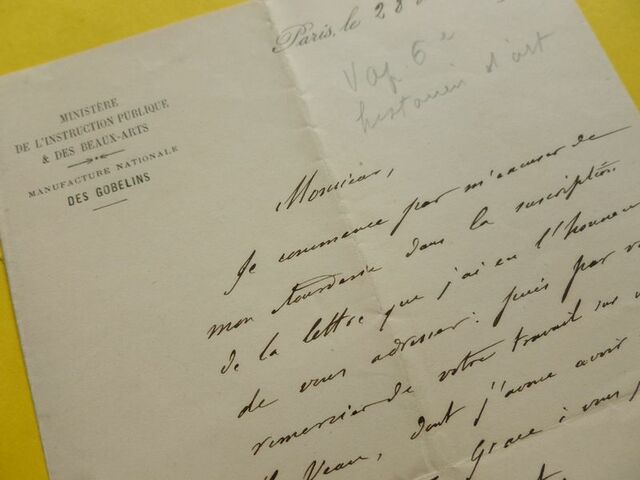 Paris, le 28
Vap. 6e
historien d'art
MINISTÈRE
DE L'INSTRUCTION PUBLIQUE
& DES BEAUX-ARTS
MANUFACTURE NATIONALE
DES GOBELINS
Monsieur,
Je commence par m'excuser de
mon étourderie dans la suscription
de la lettre que j'ai eu l'honneur
de vous adresser. puis par
remercier de votre travail sur
Veau, dont j'avoue avoir
Grâce à vous